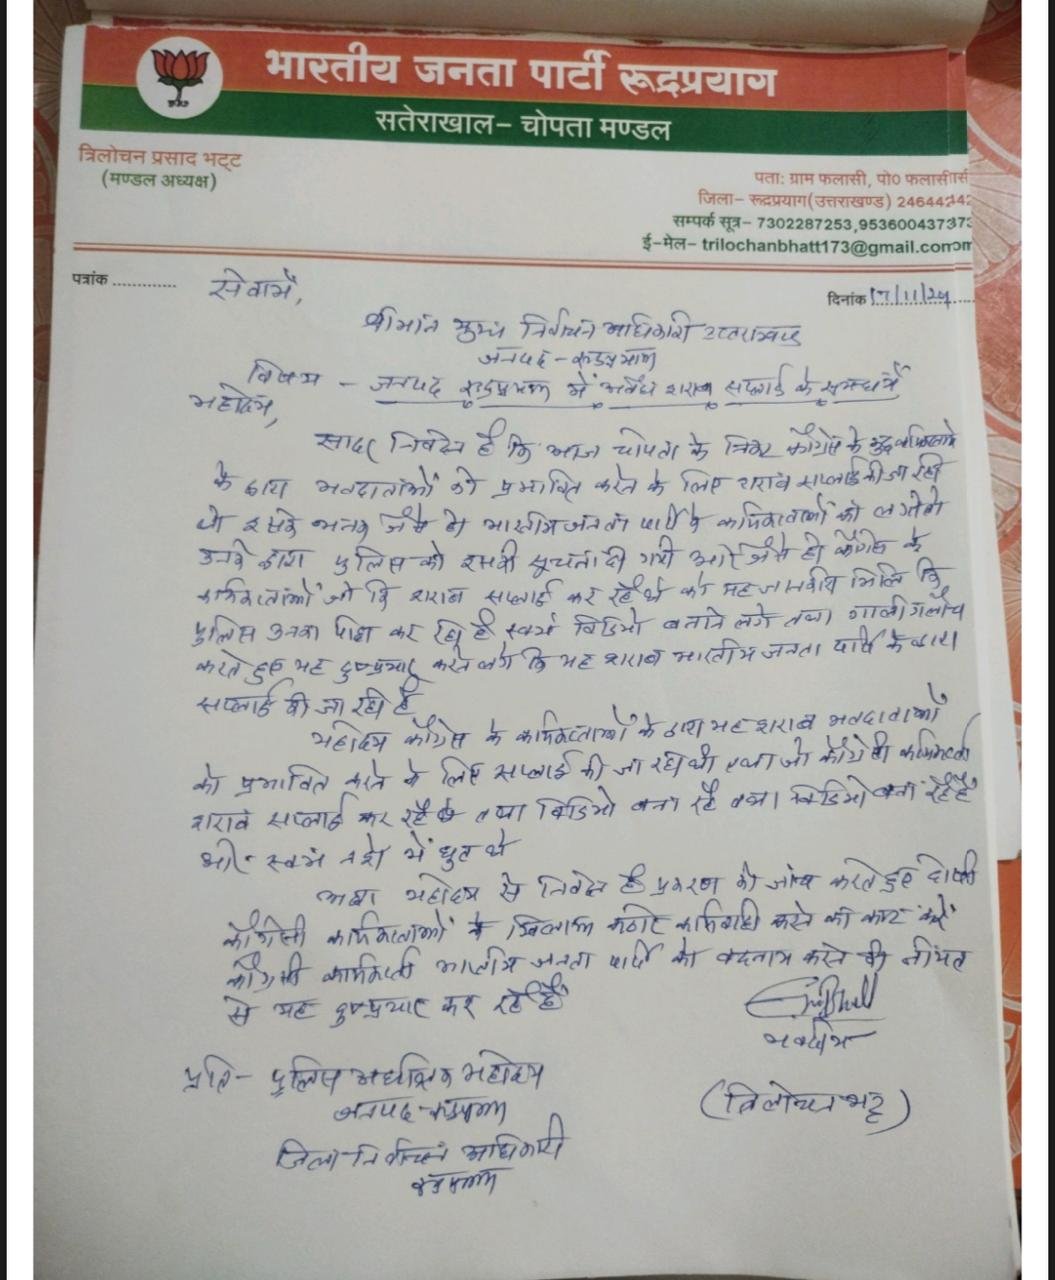 भारतीय जनता पार्टी रूद्रप्रयाग
सतेराखाल- चोपता मण्डल
त्रिलोचन प्रसाद भट्ट
(मण्डल अध्यक्ष)
पता: ग्राम फलासी, पो0 फलासी
जिला- रूद्रप्रयाग(उत्तराखण्ड) 246442
सम्पर्क सूत्र- 7302287253,9536004373
ई-मेल- trilochanbhatt173@gmail.com
पत्रांक ............
दिनांक 17/11/24
सेवामें,
श्रीमान मुख्य निर्वाचन अधिकारी उत्तराखण्ड
जनपद - रूद्रप्रयाग
विषय - जनपद रूद्रप्रयाग में अवैध शराब सप्लाई के सम्बन्ध में
महोदय,
सादर निवेदन है कि आज चोपता के निकट काँग्रेस के कुछ कार्यकर्ताओ
के द्वारा मतदाताओं को प्रभावित करने के लिए शराब सप्लाई की जा रही
थी इसकी भनक जैसे ही भारतीय जनता पार्टी के कार्यकर्ताओं को लगी तो
उनके द्वारा पुलिस को इसकी सूचना दी गयी और जैसे ही काँग्रेस के
कार्यकर्ताओं जो कि शराब सप्लाई कर रहे थे को यह जानकारी मिलि कि
पुलिस उनका पीछा कर रही है स्वयं विडियो बनाने लगे तथा गाली गलौच
करते हुए यह दुष्प्रचार करने लगे कि यह शराब भारतीय जनता पार्टी के द्वारा
सप्लाई की जा रही है
महोदय काँग्रेस के कार्यकर्ताओं के द्वारा यह शराब मतदाताओं
को प्रभावित करने के लिए सप्लाई की जा रही थी तथा जो काँग्रेसी कार्यकर्ता
शराब सप्लाई कर रहे थे तथा विडियो बना रहे तथा विडियो बना रहे है
और स्वयं नशे में धुत थे
अतः महोदय से निवेदन है प्रकरण की जांच करते हुए दोषी
काँग्रेसी कार्यकर्ताओं के खिलाफ कठोर कार्यवाही करने का कष्ट करें
काँग्रेसी कार्यकर्ता भारतीय जनता पार्टी को बदनाम करने की नीयत
से यह दुष्प्रचार कर रहे हैं
भवदीय
(त्रिलोचन भट्ट)
प्रति- पुलिस अधीक्षक महोदय
जनपद-रूद्रप्रयाग
जिला निर्वाचन अधिकारी
रूद्रप्रयाग